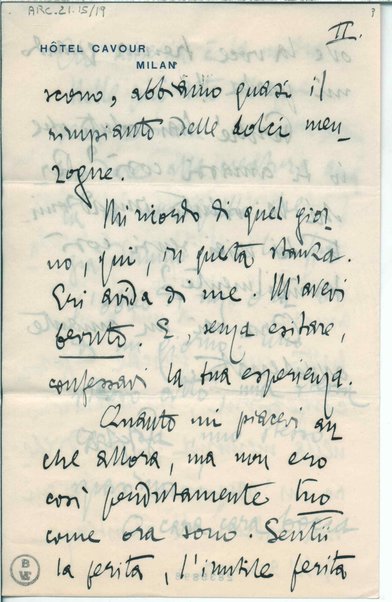 ARC.21.15/19
II.
HÔTEL CAVOUR
MILAN
scono, abbiamo quasi il
rimpianto delle dolci men-
zogne.
Mi ricordo di quel gior-
no, qui, in questa stanza.
Eri avida di me. M'avevi
bevuto. E, senza esitare,
confessavi la tua esperienza.
Quanto mi piacevi an
che allora, ma non ero
così perdutamente tuo
come ora sono. Sentii
la ferita, l'inutile ferita